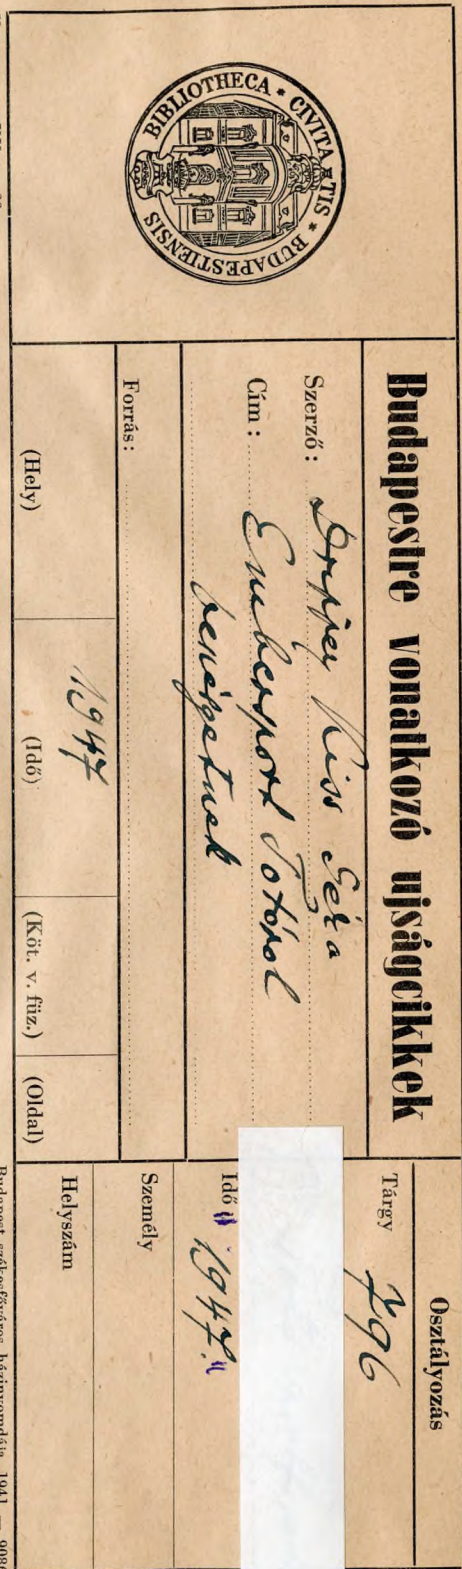 BIBLIOTHECA * CIVITATIS * BUDAPESTIENSIS
Budapestre vonatkozó ujságcikkek
Szerző: Kiss Géza
Cím: Embersport Totóról
beszélgetnek
Forrás:
1947
(Hely) (Idő) (Köt. v. füz.) (Oldal)
Osztályozás
Tárgy 796
Idő "1947."
Személy
Helyszám
Budapest székesfőváros házinyomdája 1941 —